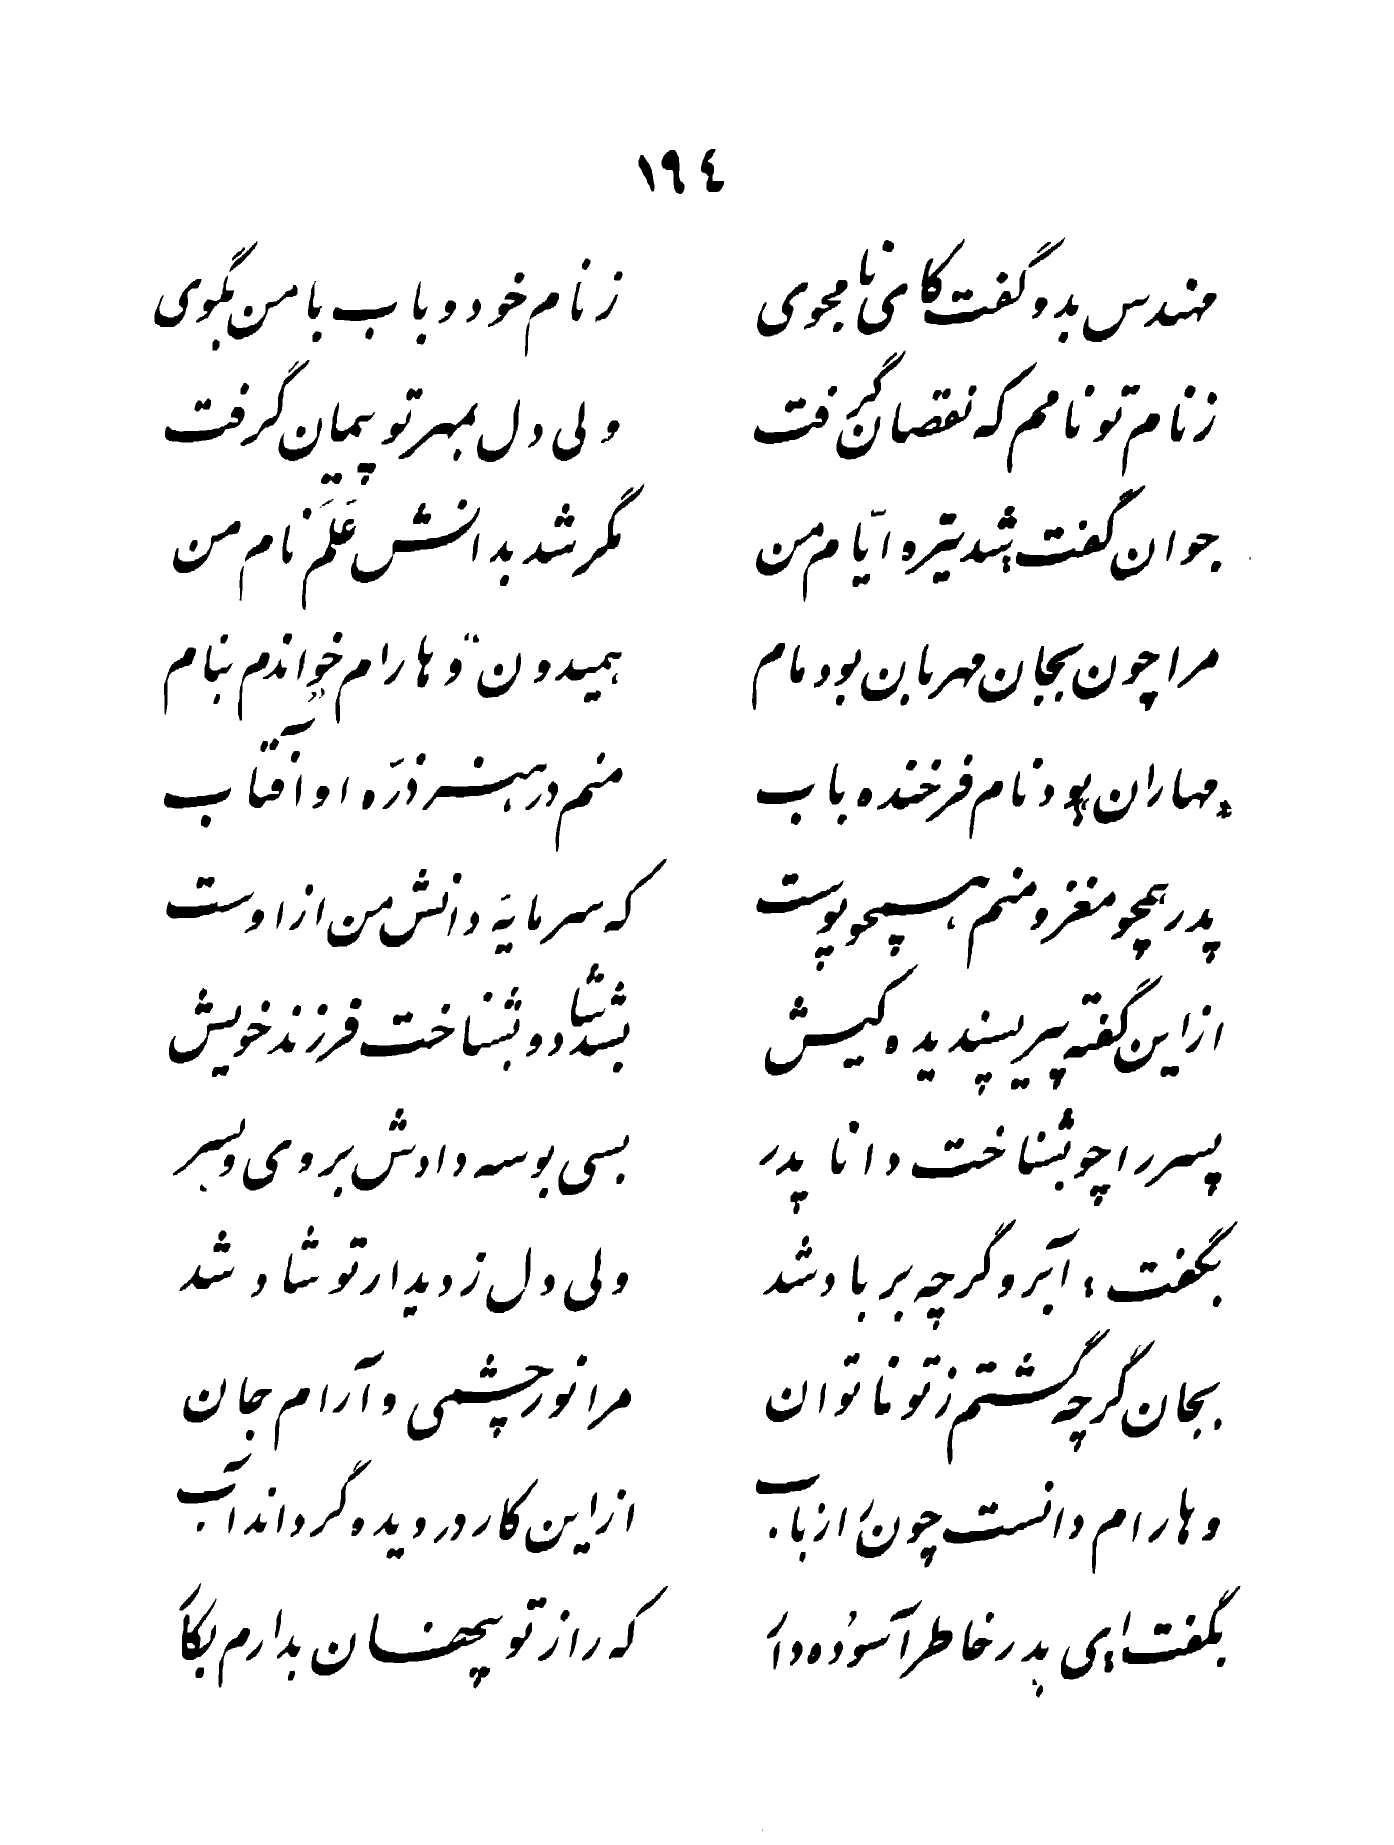 ١٩٤
مهندس بدو گفت کای نامجوی ز نام خود و باب با من بگوی
ز نام تو نامم که نقصان گرفت ولی دل بمهر تو پیمان گرفت
جوان گفت شد تیره ایّام من مگر شد بدانش عَلَم نام من
مرا چون بجان مهربان بود مام همیدون وهارام خواندم بنام
مهاران بود نام فرخنده باب منم در هنر ذرّه او آفتاب
پدر همچو مغز و منم همچو پوست که سرمایهَ دانش من از اوست
از این گفته پیر پسندیده کیش بشد شاد و بشناخت فرزند خویش
پسر را چو بشناخت دانا پدر بسی بوسه دادش بروی و بسر
بگفت، آبرو گرچه بر باد شد ولی دل ز دیدار تو شاد شد
بجان گرچه گشتم ز تو ناتوان مرا نور چشمی و آرام جان
وهارام دانست چون از باب از این کار در دیده گرداند آب
بگفت ای پدر خاطر آسوده دا که راز تو پنهان بدارم بکا